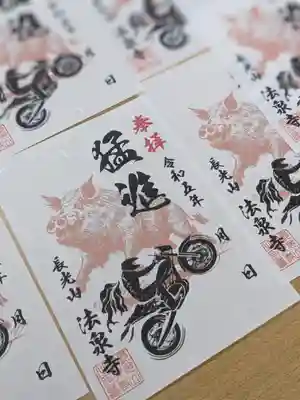 奉拝
猛進
令和五年
月
日
長光山
法泉寺
長光山
法泉寺
月
日
月
日
月
日